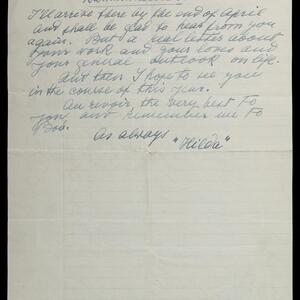 I'll arrive there by the end of April
and shall be glad to hear from you
again. But a real letter about
your work and your loves and
your general outlook on life.
And then I hope to see you
in the course of this year.
Au revoir, the very best to
you, and remember me to
Bob.
As always "Hilde"